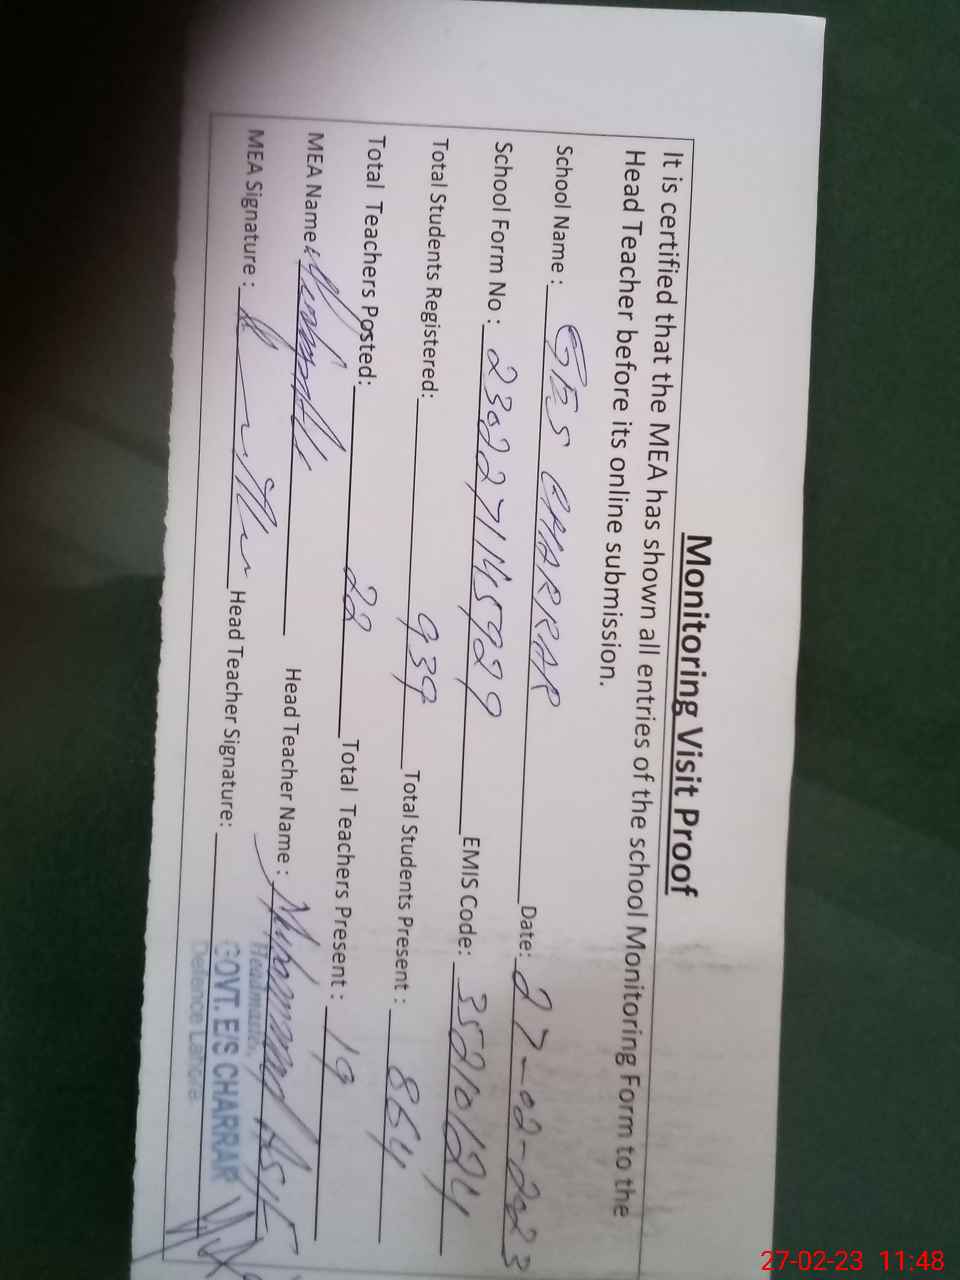 Monitoring Visit Proof
It is certified that the MEA has shown all entries of the school Monitoring Form to the
Head Teacher before its online submission.
School Name : GES CHARRAR Date: 27-02-2023
School Form No : 230227145929 EMIS Code: 35210124
Total Students Registered: 939 Total Students Present : 864
Total Teachers Posted: 22 Total Teachers Present : 19
MEA Name : Head Teacher Name : Muhammad Asif
MEA Signature : Head Teacher Signature:
Headmaster,
GOVT. E/S CHARRAR
Defence Lahore.
27-02-23 11:48